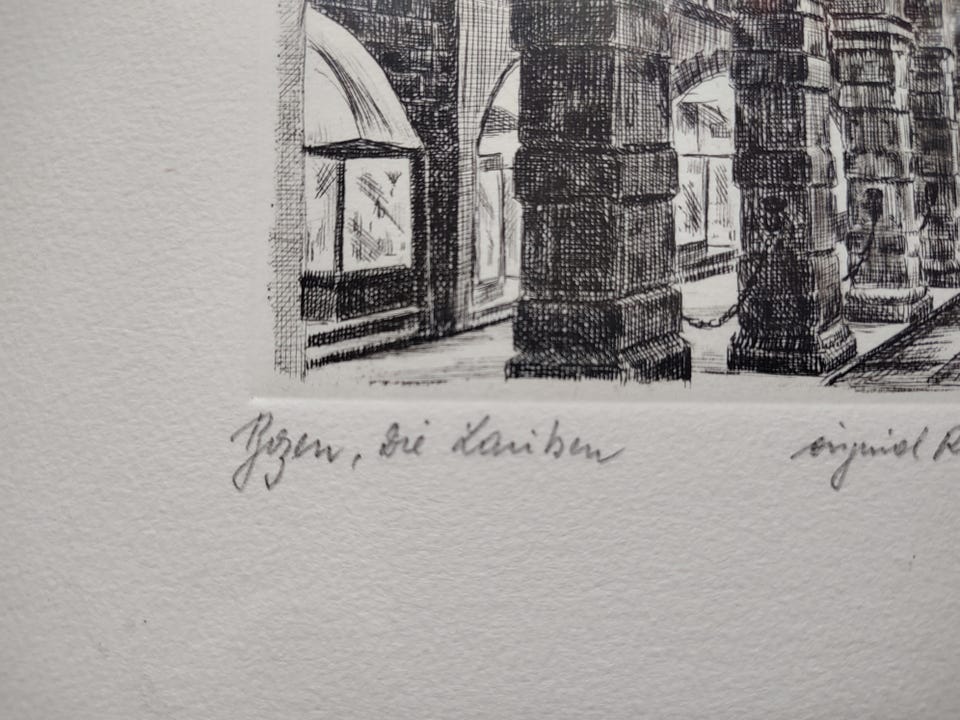 Bozen, die Lauben original R